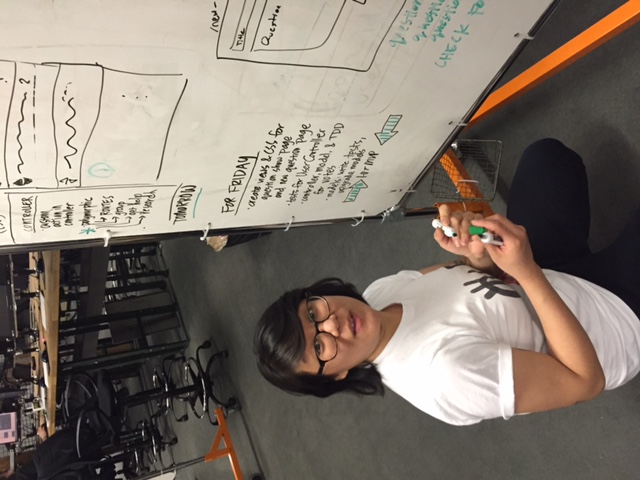 CONTROLLER
• custom
action in
controller
* polymorphic
→ ROUTES
→ group
→ get help
→ Research
2
TOMORROW
FOR FRIDAY
• create views & CSS for
question show page
and new question page
• tests for UserController
• controller, model, & TDD
for votes
• models: write tests,
upgrade models
HIT MVP
/new-
Title
Question
CHECK